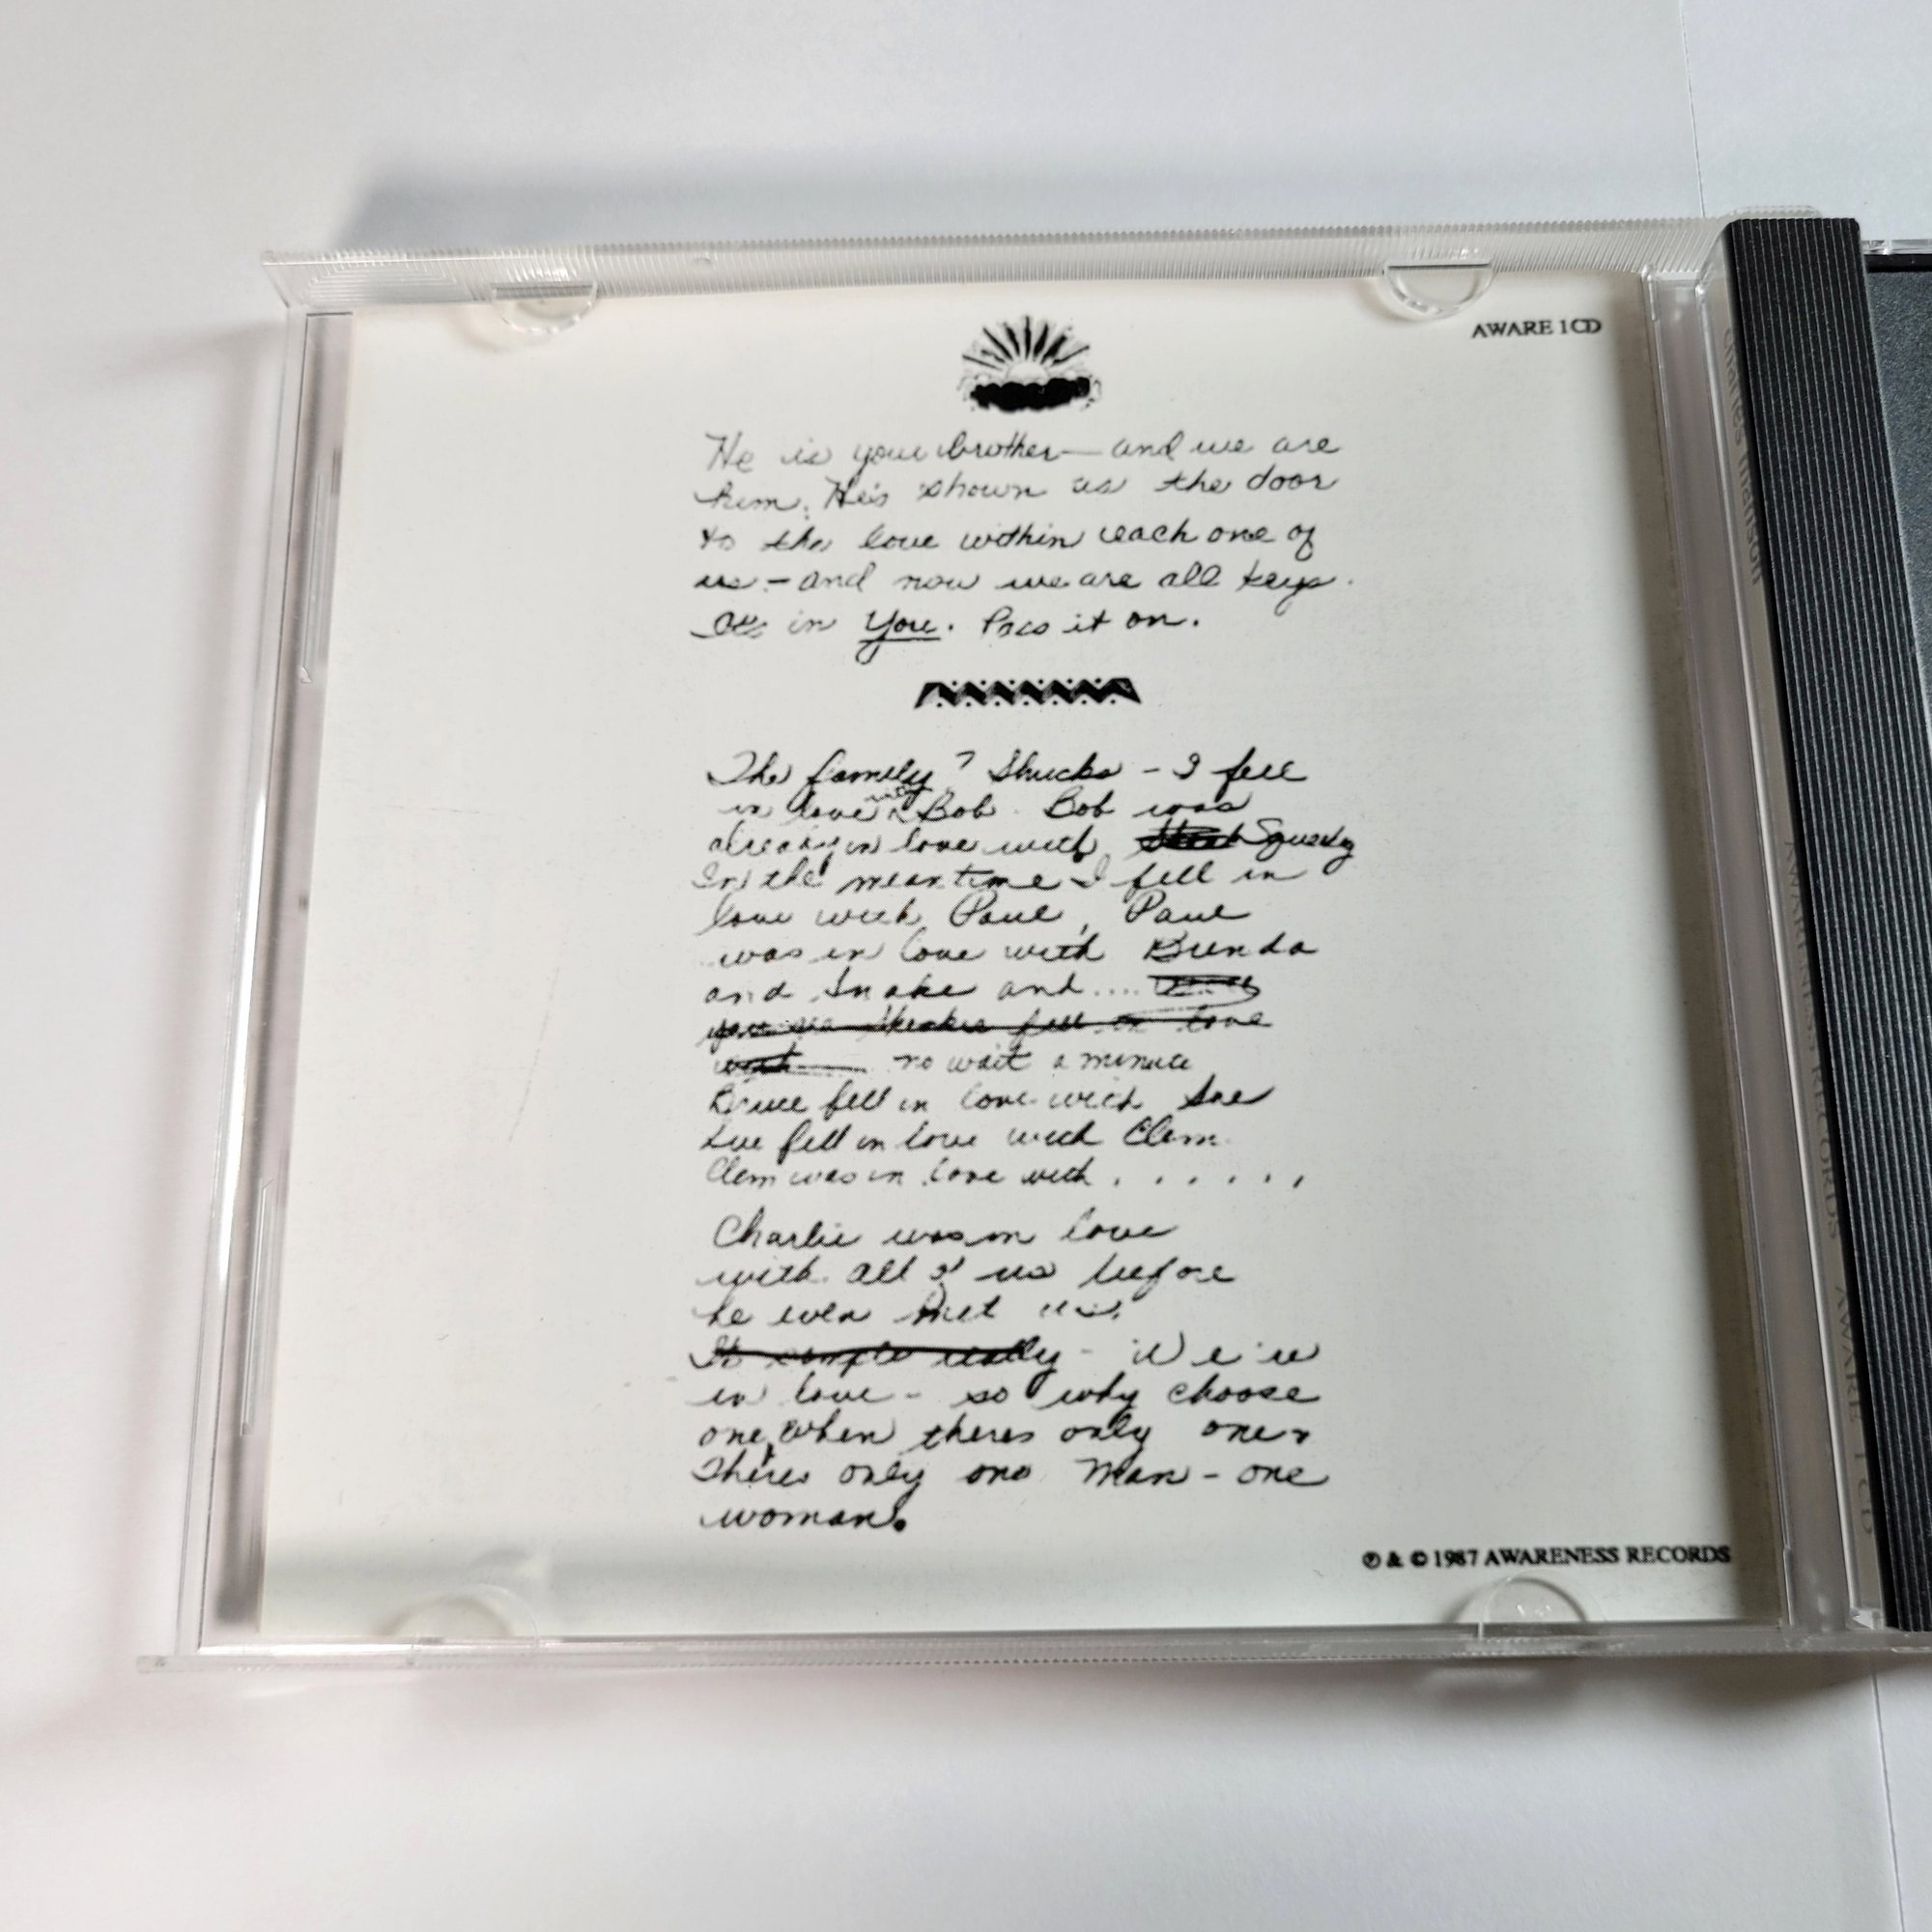 AWARE 1CD
He is your brother — and we are
him. He's shown us the door
to the love within each one of
us - and now we are all keys.
in You. Pass it on.
The family? Shucks - I fell
in love with Bob. Bob was
already in love with Squeaky
In the meantime I fell in
love with Paul, Paul
was in love with Brenda
and Snake and....
fell in love
with no wait a minute
Bruce fell in love with Sue
Sue fell in love with Clem
Clem was in love with . . . . . .
Charlie was in love
with all of us before
he ever met us.
Its simple really - We're
in love - so why choose
one, when theres only one.
Theres only one Man - one
woman.
℗ & © 1987 AWARENESS RECORDS
charles manson
AWARENESS RECORDS AWARE 1 CD